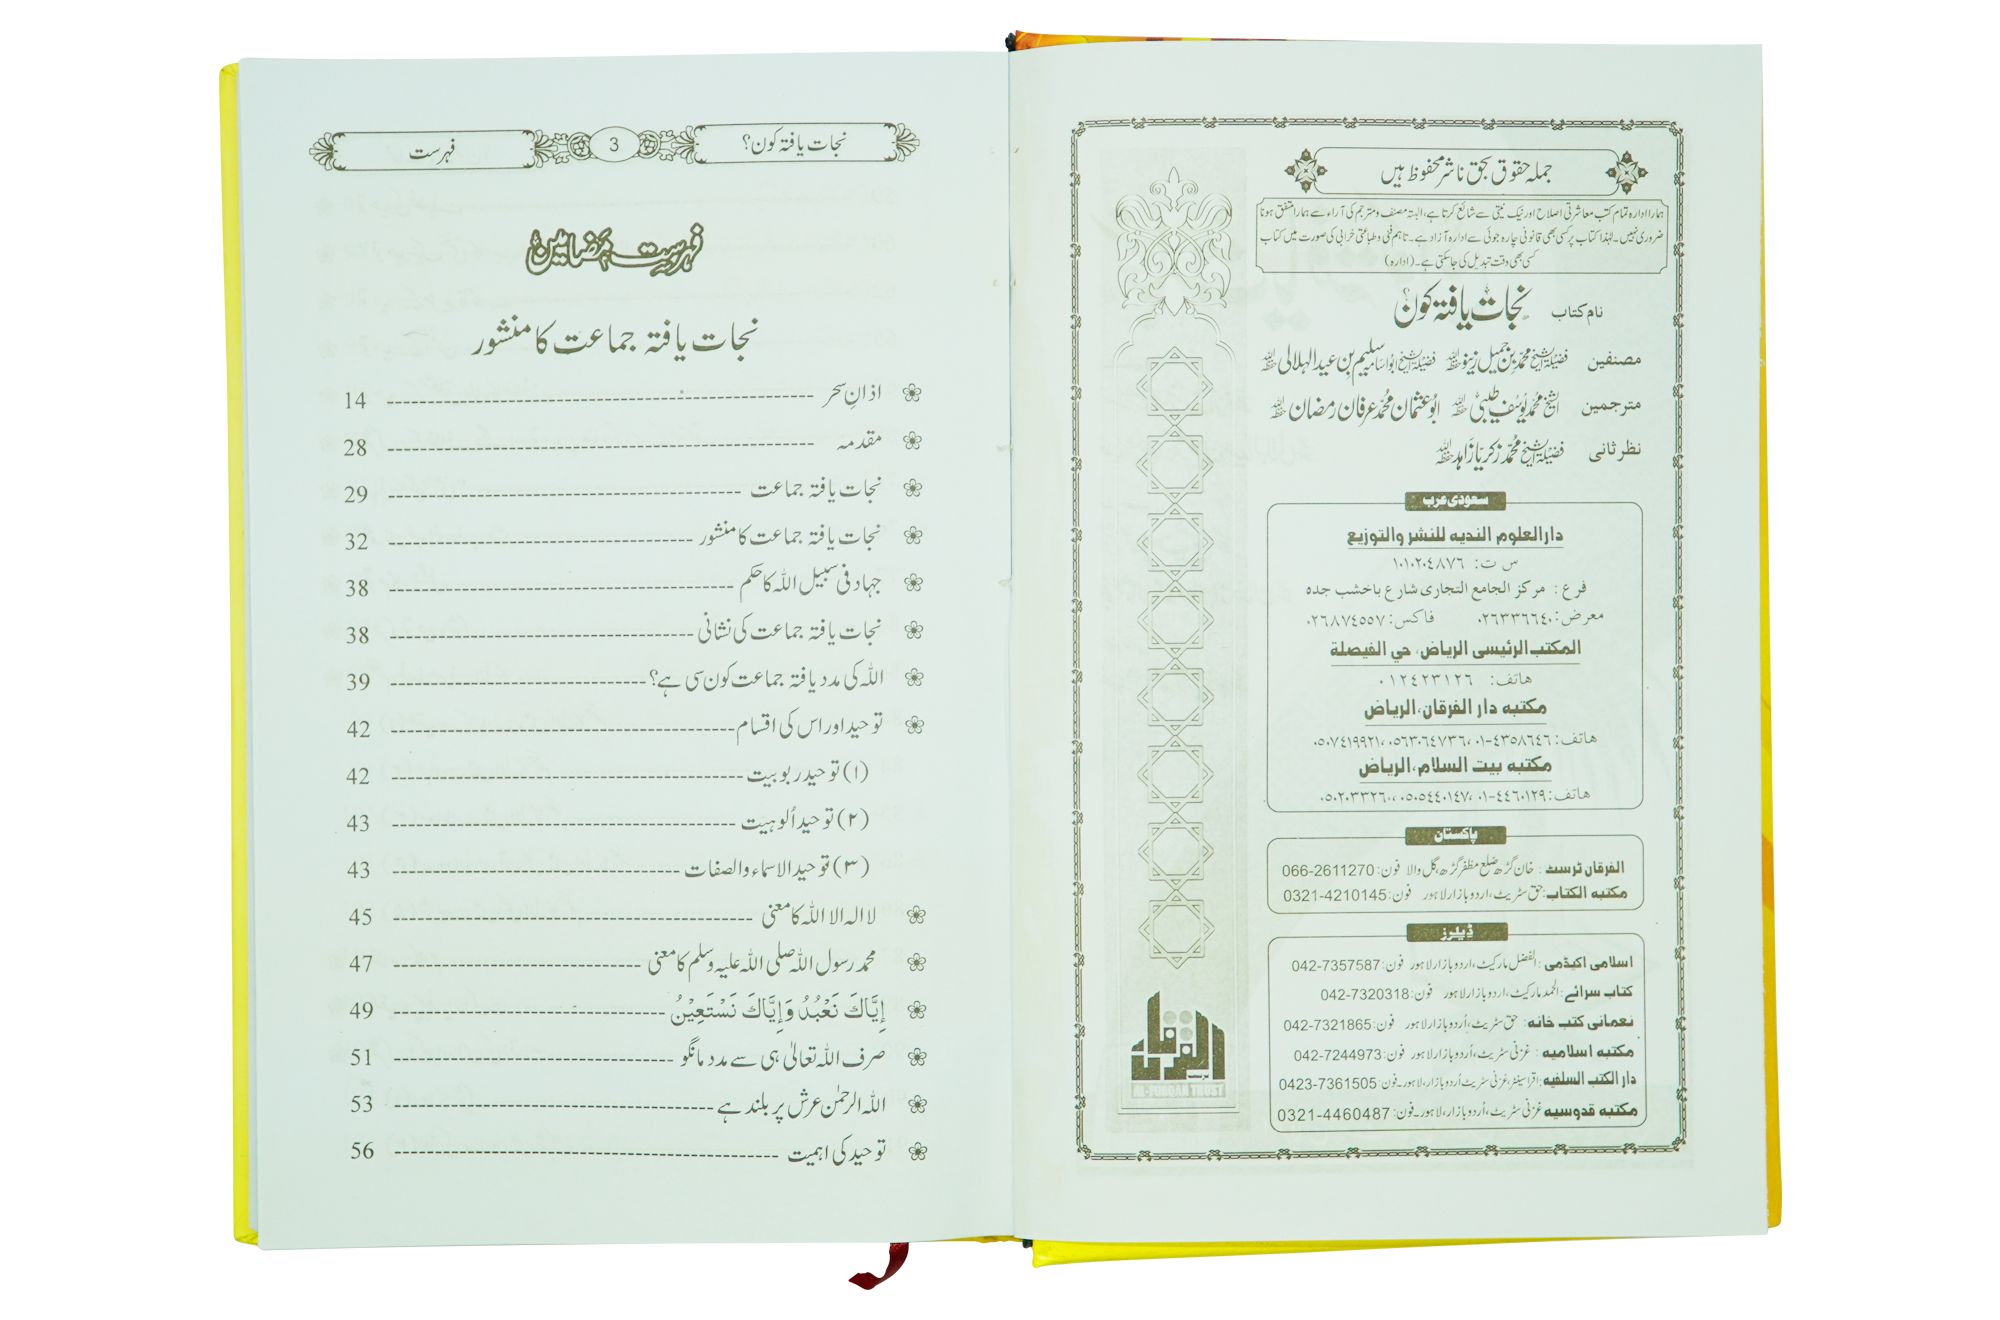 جملہ حقوق بحق ناشر محفوظ ہیں
ہمارا ادارہ تمام کتب معاشرتی اصلاح اور نیک نیتی سے شائع کرتا ہے، البتہ مصنف و مترجم کی آراء سے ہمارا متفق ہونا
ضروری نہیں۔ لہٰذا کتاب پر کسی بھی قانونی چارہ جوئی سے ادارہ آزاد ہے۔ تاہم فنی و طباعتی خرابی کی صورت میں کتاب
کسی بھی وقت تبدیل کی جاسکتی ہے۔ (ادارہ)
نام کتاب نجات یافتہ کون؟
مصنفین فضیلۃ الشیخ محمد بن جمیل زینو حفظہ اللہ فضیلۃ الشیخ ابو اسامہ سلیم بن عید الہلالی حفظہ اللہ
مترجمین الشیخ محمد یوسف طیبی حفظہ اللہ ابو عثمان محمد عرفان رمضان حفظہ اللہ
نظر ثانی فضیلۃ الشیخ محمد زکریا زاہد حفظہ اللہ
سعودی عرب
دار العلوم النديه للنشر والتوزيع
س ت: ١٠١٠٢٠٤٨٧٦
فرع: مركز الجامع التجارى شارع باخشب جده
معرض: ٠٢٦٣٣٦٦٤٠ فاكس: ٠٢٦٨٧٤٥٥٧
المكتب الرئيسى الرياض، حي الفيصلة
هاتف: ٠١٢٤٢٣١٢٦
مكتبه دار الفرقان، الرياض
هاتف: ٠١-٤٣٥٨٦٤٦، ٠٥٦٣٠٦٤٧٣٦، ٠٥٠٧٤١٩٩٢١
مكتبه بيت السلام، الرياض
هاتف: ٠١-٤٤٦٠١٢٩، ٠٥٠٥٤٤٠١٤٧، ٠٥٠٢٠٣٣٢٦٠
پاکستان
الفرقان ٹرسٹ: خان گڑھ ضلع مظفر گڑھ، گل والا فون: 066-2611270
مکتبہ الکتاب: حق سٹریٹ، اردو بازار لاہور فون: 0321-4210145
ڈیلرز
اسلامی اکیڈمی: الفضل مارکیٹ، اردو بازار لاہور فون: 042-7357587
کتاب سرائے: الحمد مارکیٹ، اردو بازار لاہور فون: 042-7320318
نعمانی کتب خانہ: حق سٹریٹ، اُردو بازار لاہور فون: 042-7321865
مکتبہ اسلامیہ: غزنی سٹریٹ، اُردو بازار، لاہور فون: 042-7244973
دار الکتب السلفیہ: اقرا سینٹر، غزنی سٹریٹ اُردو بازار، لاہور۔ فون: 0423-7361505
مکتبہ قدوسیہ غزنی سٹریٹ، اُردو بازار، لاہور۔ فون: 0321-4460487
الفرقان ٹرسٹ
AL-FURQAN TRUST
نجات یافتہ کون؟ 3 فہرست
فہرست مضامین
نجات یافتہ جماعت کا منشور
اذانِ سحر 14
مقدمہ 28
نجات یافتہ جماعت 29
نجات یافتہ جماعت کا منشور 32
جہاد فی سبیل اللہ کا حکم 38
نجات یافتہ جماعت کی نشانی 38
اللہ کی مدد یافتہ جماعت کون سی ہے؟ 39
توحید اور اس کی اقسام 42
(۱) توحید ربوبیت 42
(۲) توحید اُلوہیت 43
(۳) توحید الاسماء والصفات 43
لا الہ الا اللہ کا معنی 45
محمد رسول اللہ صلی اللہ علیہ وسلم کا معنی 47
إِيَّاكَ نَعْبُدُ وَإِيَّاكَ نَسْتَعِيْنُ 49
صرف اللہ تعالیٰ ہی سے مدد مانگو 51
اللہ الرحمٰن عرش پر بلند ہے 53
توحید کی اہمیت 56